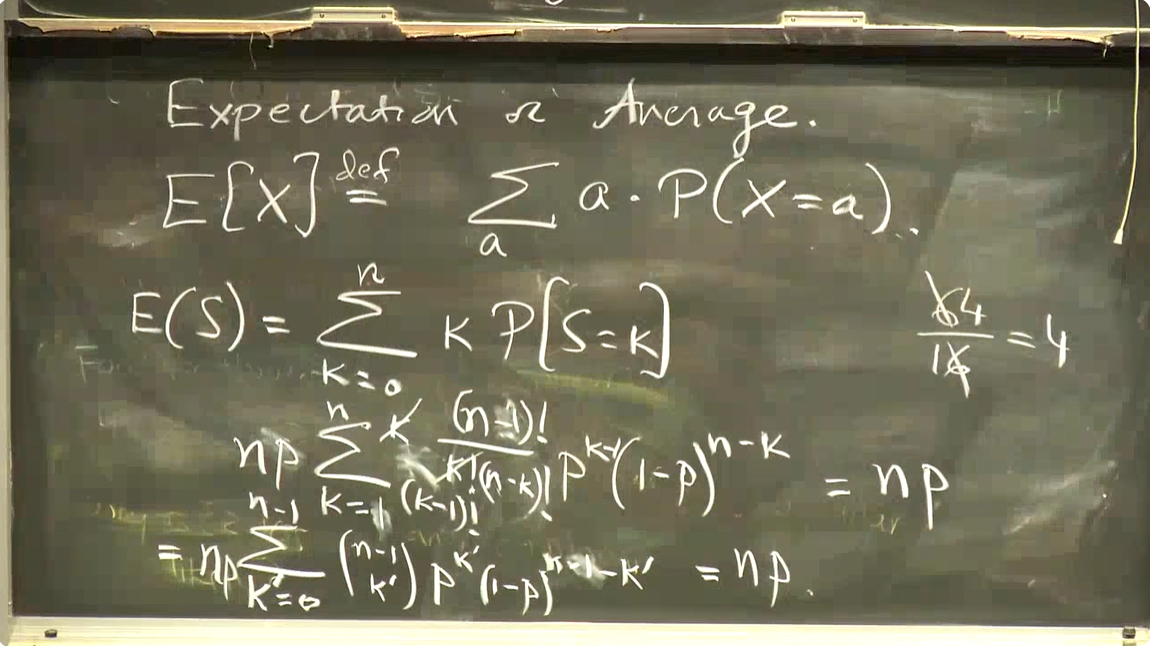 Expectation or Average.
E[X] def= Σ_a a · P(X=a).
E(S) = Σ_{k=0}^{n} k P[S=k]
64/16 = 4
np Σ_{k=1}^{n} k (n-1)!/(k!(n-k)!) (k-1)! p^{k-1} (1-p)^{n-k} = np
= np Σ_{k'=0}^{n-1} (n-1 k') p^{k'} (1-p)^{n-1-k'} = np.